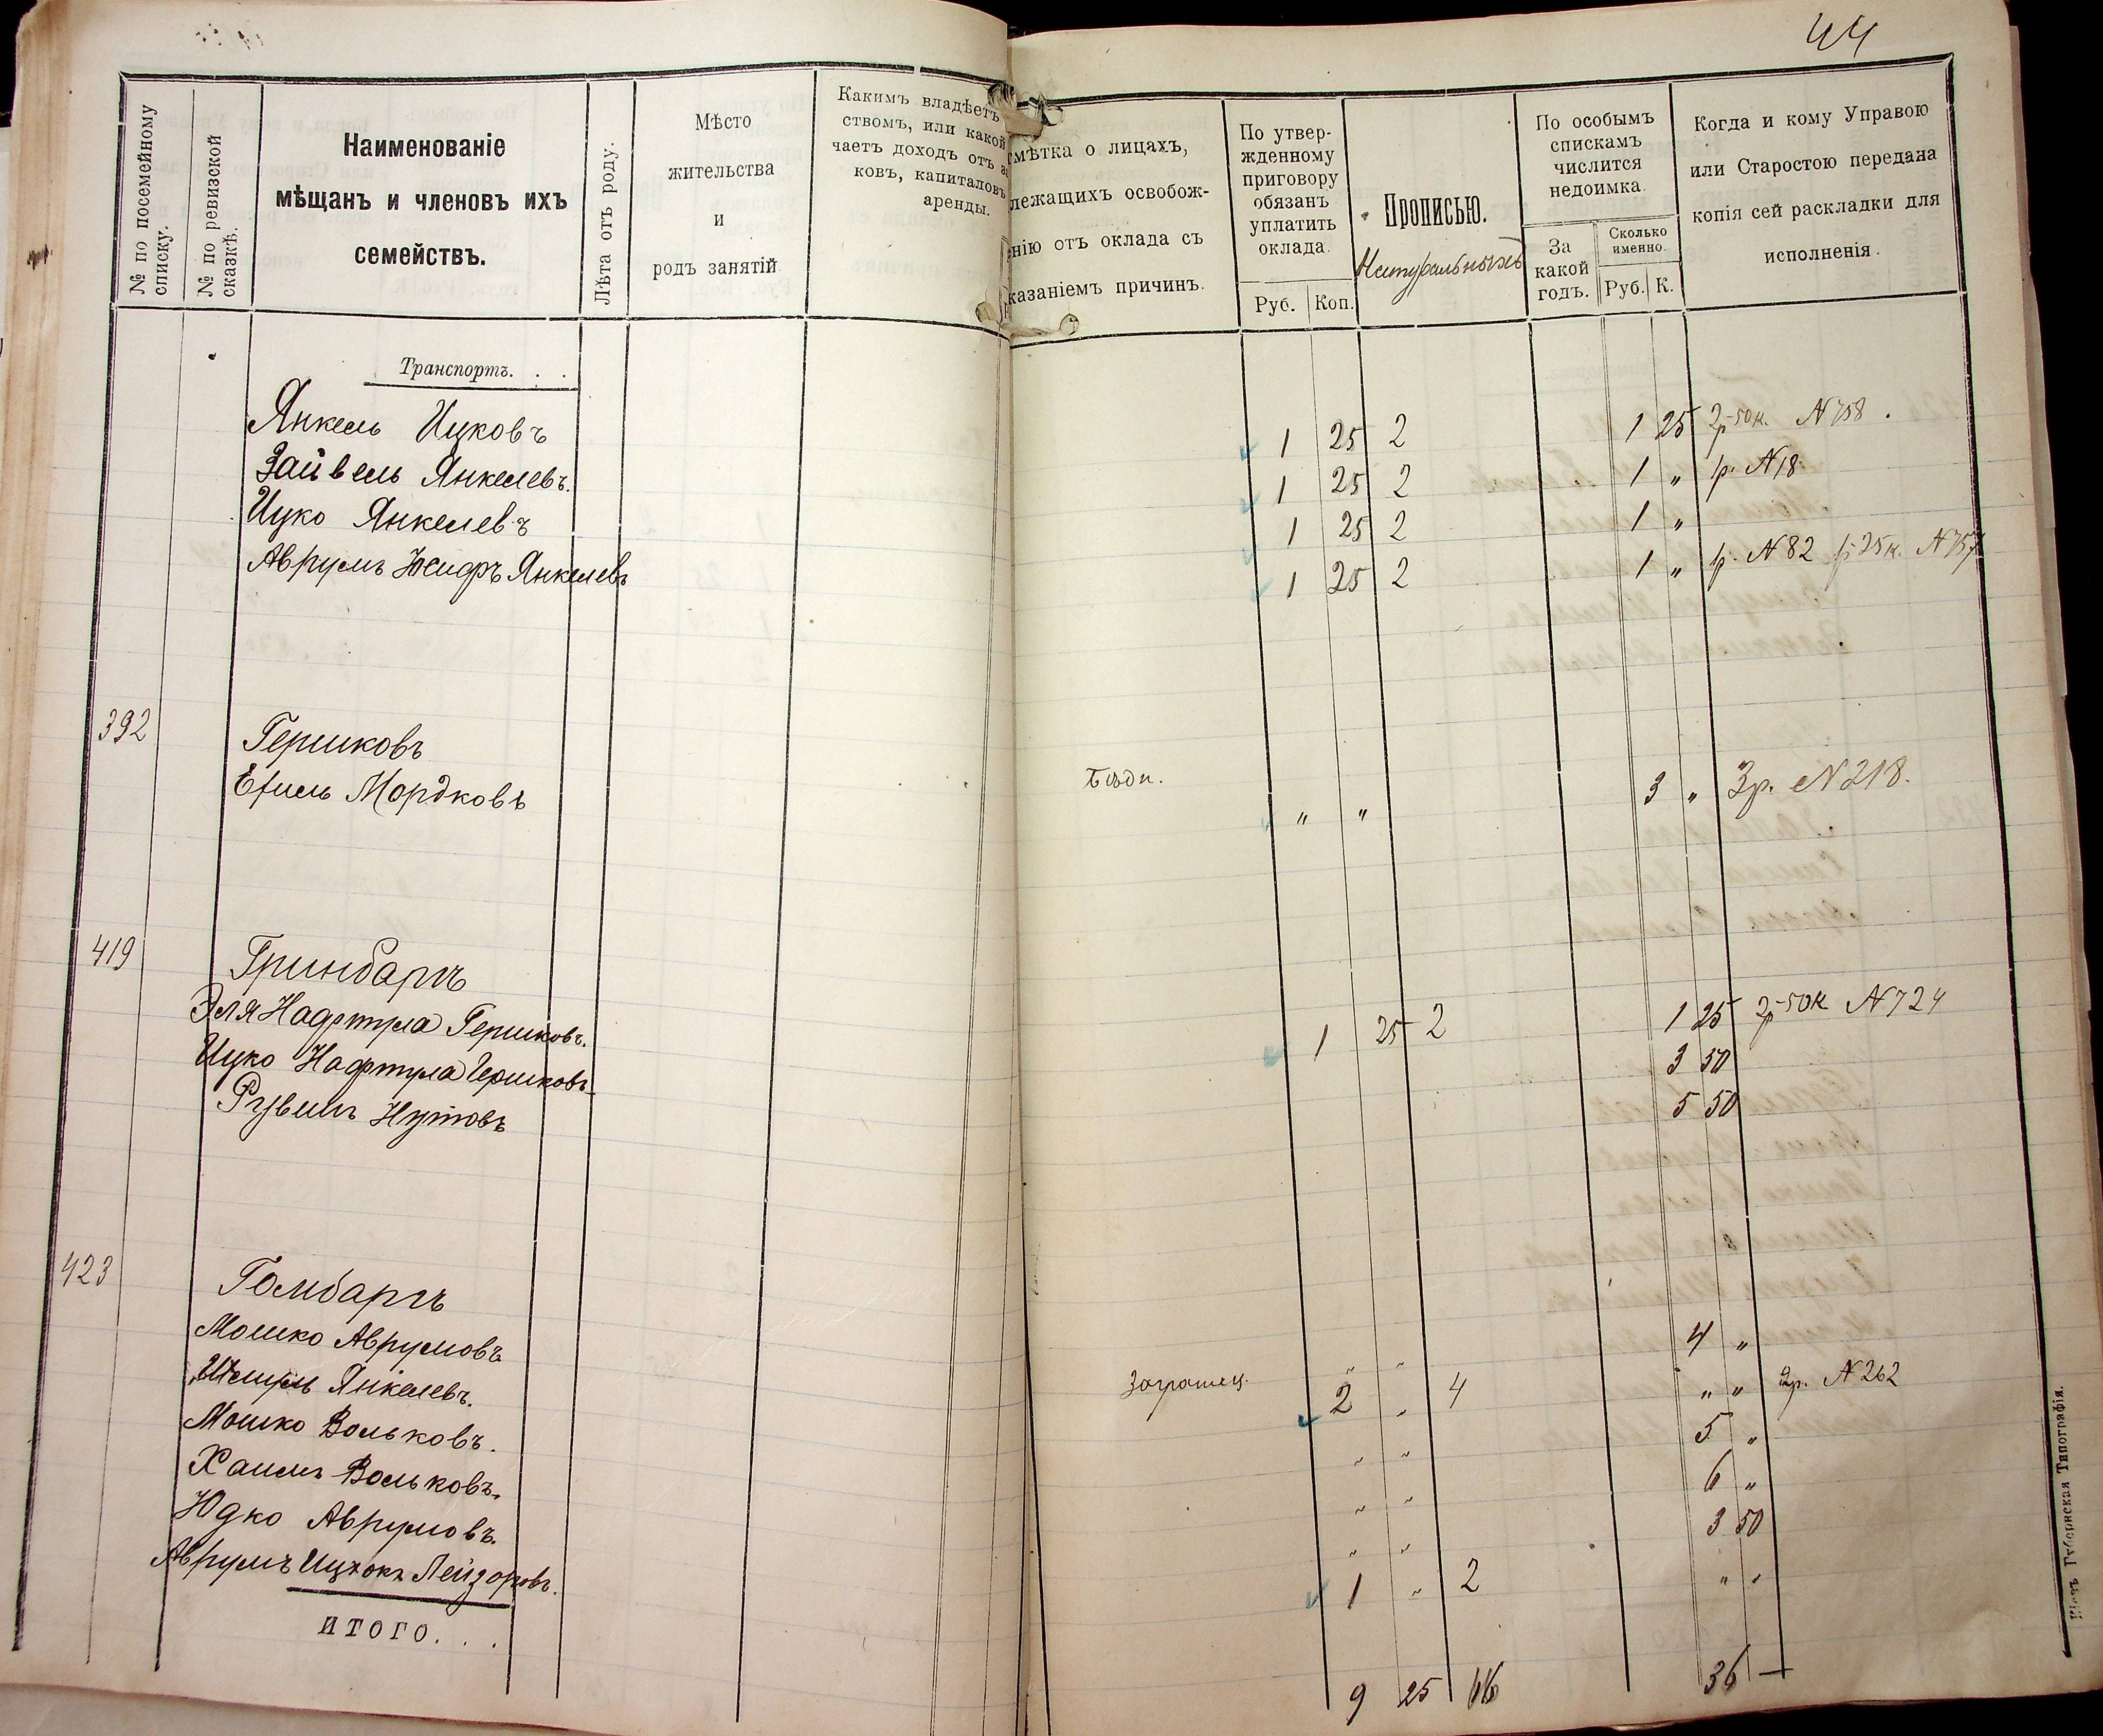 44
№ по посемейному списку.
№ по ревизской сказкѣ.
Наименованіе
мѣщанъ и членовъ ихъ
семействъ.
Лѣта отъ роду.
Мѣсто
жительства
и
родъ занятій
Какимъ владѣетъ
ствомъ, или какой
чаетъ доходъ отъ
ковъ, капиталовъ
аренды.
мѣтка о лицахъ,
лежащихъ освобож-
нію отъ оклада съ
казаніемъ причинъ.
По утвер-
жденному
приговору
обязанъ
уплатить
оклада.
Руб. Коп.
Прописью.
Натуральныхъ
По особымъ
спискамъ
числится
недоимка.
За
какой
годъ.
Сколько
именно.
Руб. К.
Когда и кому Управою
или Старостою передана
копія сей раскладки для
исполненія.
Транспортъ. . .
Янкель Ицковъ 1 25 2 1 25 2р 50к. №758.
Зайвель Янкелевъ. 1 25 2 1 " р. №18
Ицко Янкелевъ 1 25 2 1 "
Аврумъ Іосифъ Янкелевъ 1 25 2 1 " р. №82 р 25к. №757
392 Гершковъ
Ефиль Мордковъ Бѣдн. " " 3 " 3р. №218.
419 Гринбаргъ
Эля Нафтула Гершковъ. 1 25 2 1 25 2р 50к №724
Ицко Нафтула Гершковъ 3 50
Рувинъ Нутовъ 5 50
423 Гомбаргъ
Мошко Аврумовъ " " 4 "
Шмуль Янкелевъ. Заграниц. 2 " 4 " " 2р. №262
Мошко Вольковъ. " " 5 "
Хаимъ Вольковъ. " " 6 "
Юдко Аврумовъ. " " 3 50
Аврумъ Ицхокъ Лейзоровъ. 1 " 2 " "
ИТОГО. . .
9 25 16 36 —
Кіевъ Губернская Типографія.